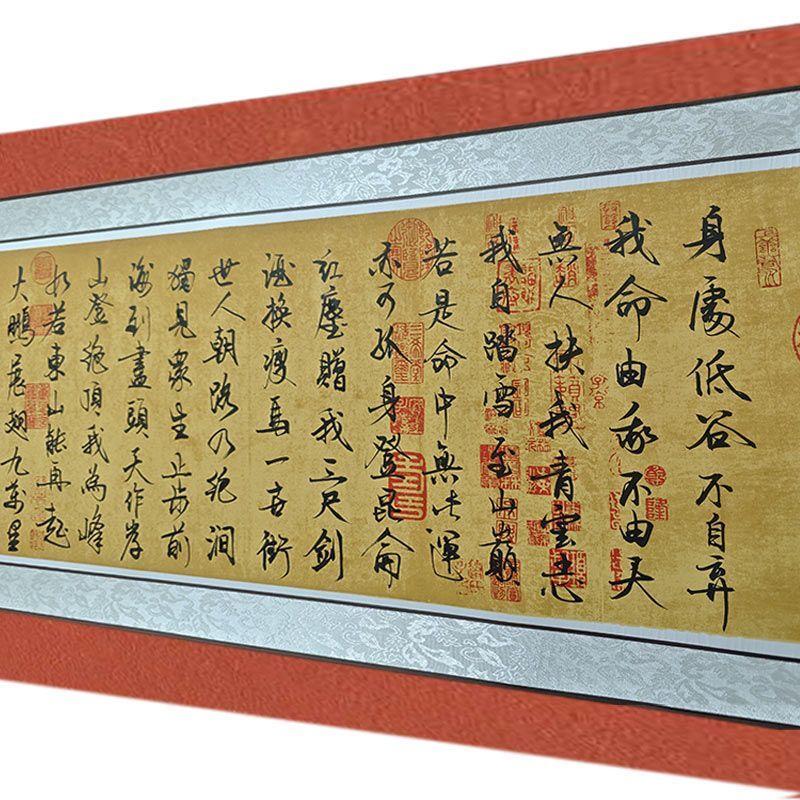 身處低谷不自弃
我命由我不由天
無人扶我青雲志
我自踏雪至山巔
若是命中無此運
亦可孤身登昆侖
红塵贈我三尺劍
酒换瘦馬一世街
世人朝路乃绝涧
獨見衆生止步前
海到盡頭天作岸
山登绝頂我為峰
如若東山能再起
大鵬展翅九萬里